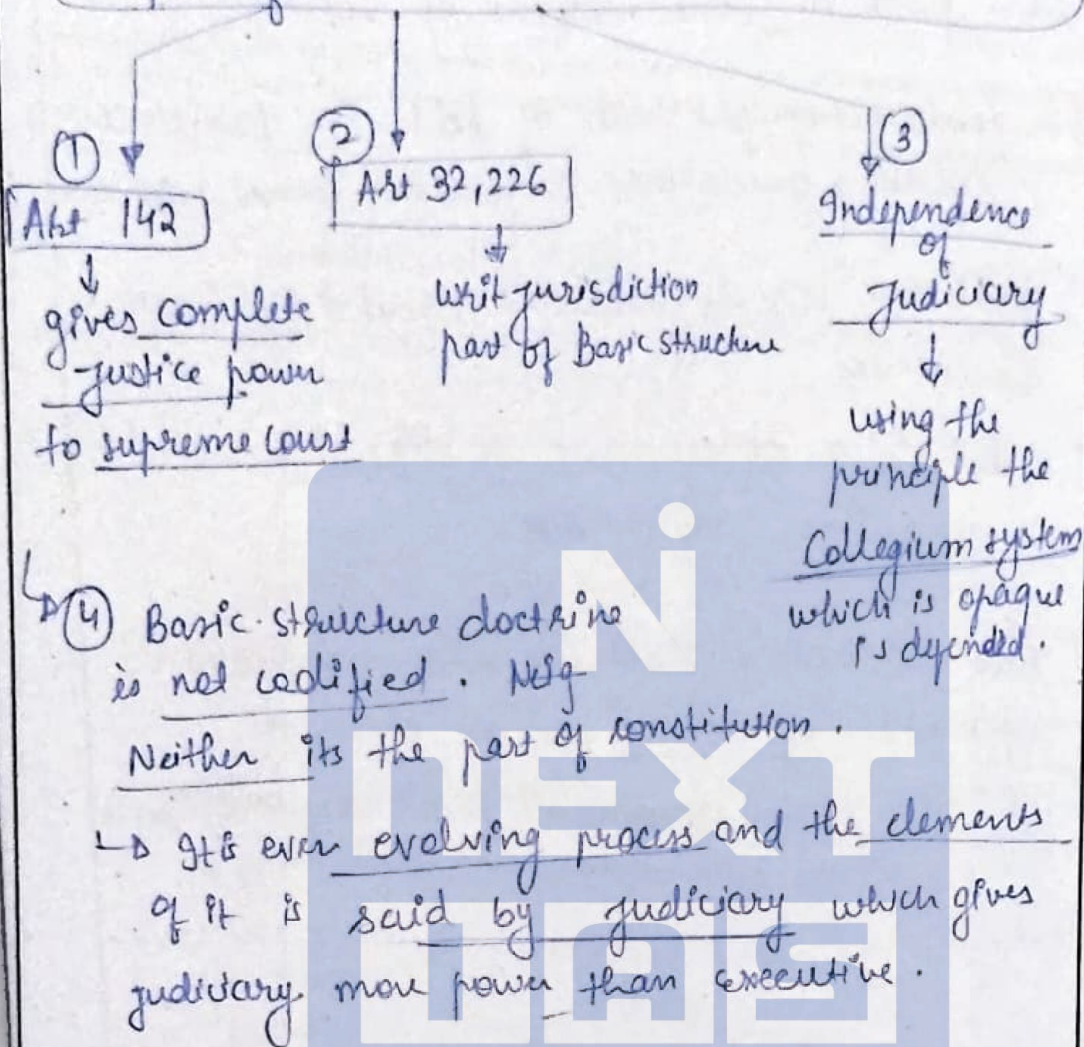 1
Art 142
gives complete
justice power
to supreme court
2
Art 32,226
writ jurisdiction
part of Basic structure
3
Independence
of
Judiciary
using the
principle the
Collegium system
which is opaque
is
4 Basic structure doctrine
is not codified.
Neither its the part of constitution.
It is ever evolving process and the elements
of it is said by judiciary which gives
judiciary more power than executive.
N
NEXT
IAS